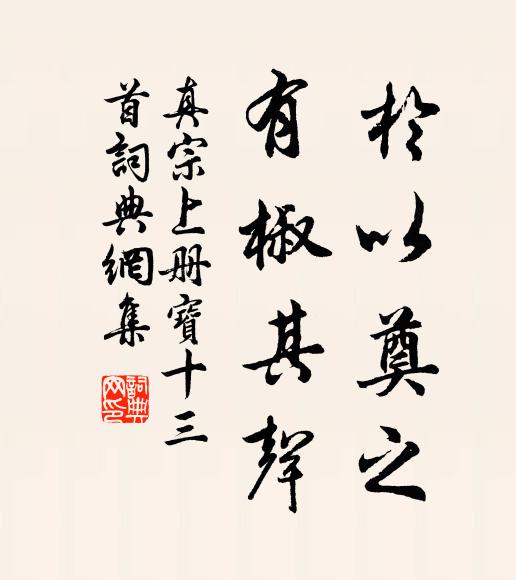 於以奠之
有椒其聲
真宗上册寶十三
首詞典網集
詞典
网印